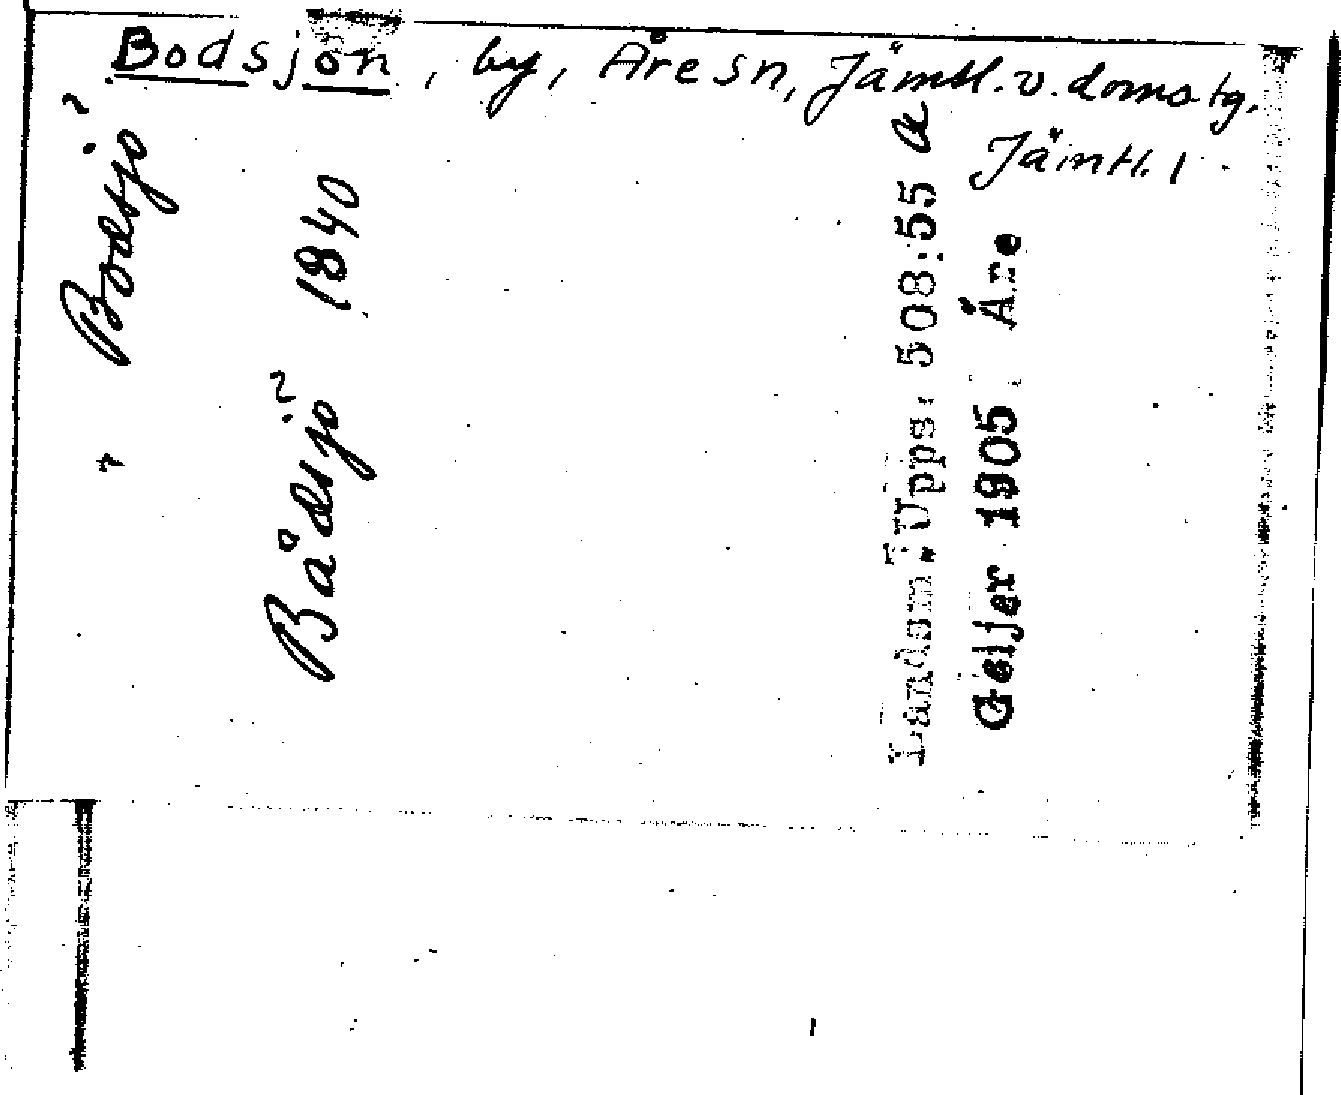 Bodsjön, by, Åre sn, Jämtl. v. doms. tg.
Jämtl. l
Bodsjö ?
Bådsjö ? 1840
Landsm. Upps. 508:55 a
Geijer 1905 Åre